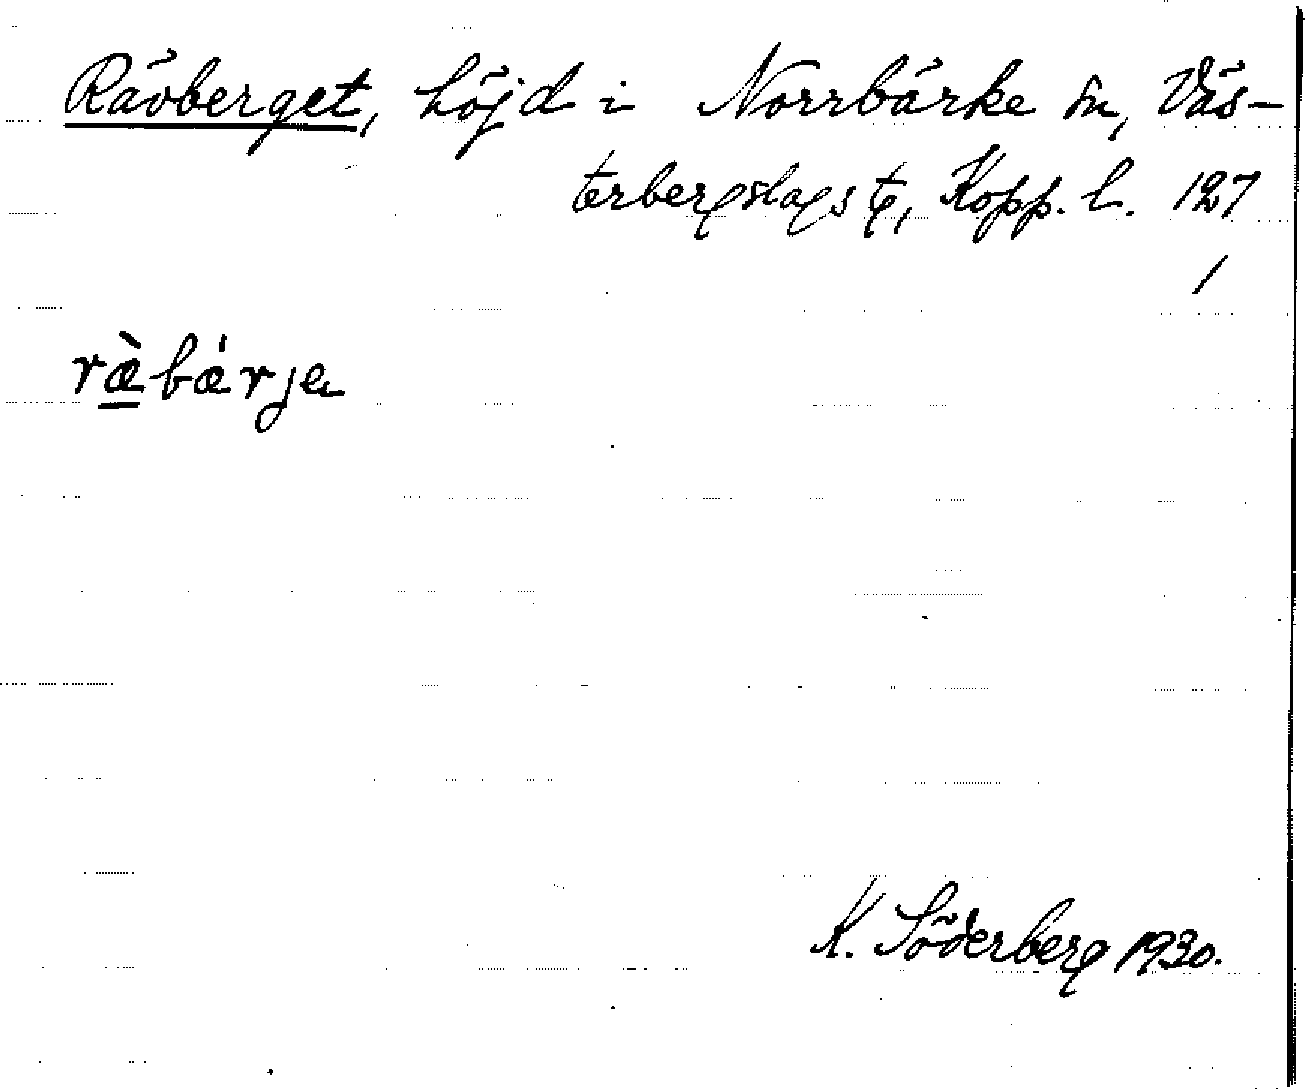 Rävberget, höjd i Norrbärke sn, Väs-
terbergslags tg, Kopp. l. 127
/
ræ̀bǽrja
K. Söderberg 1930.